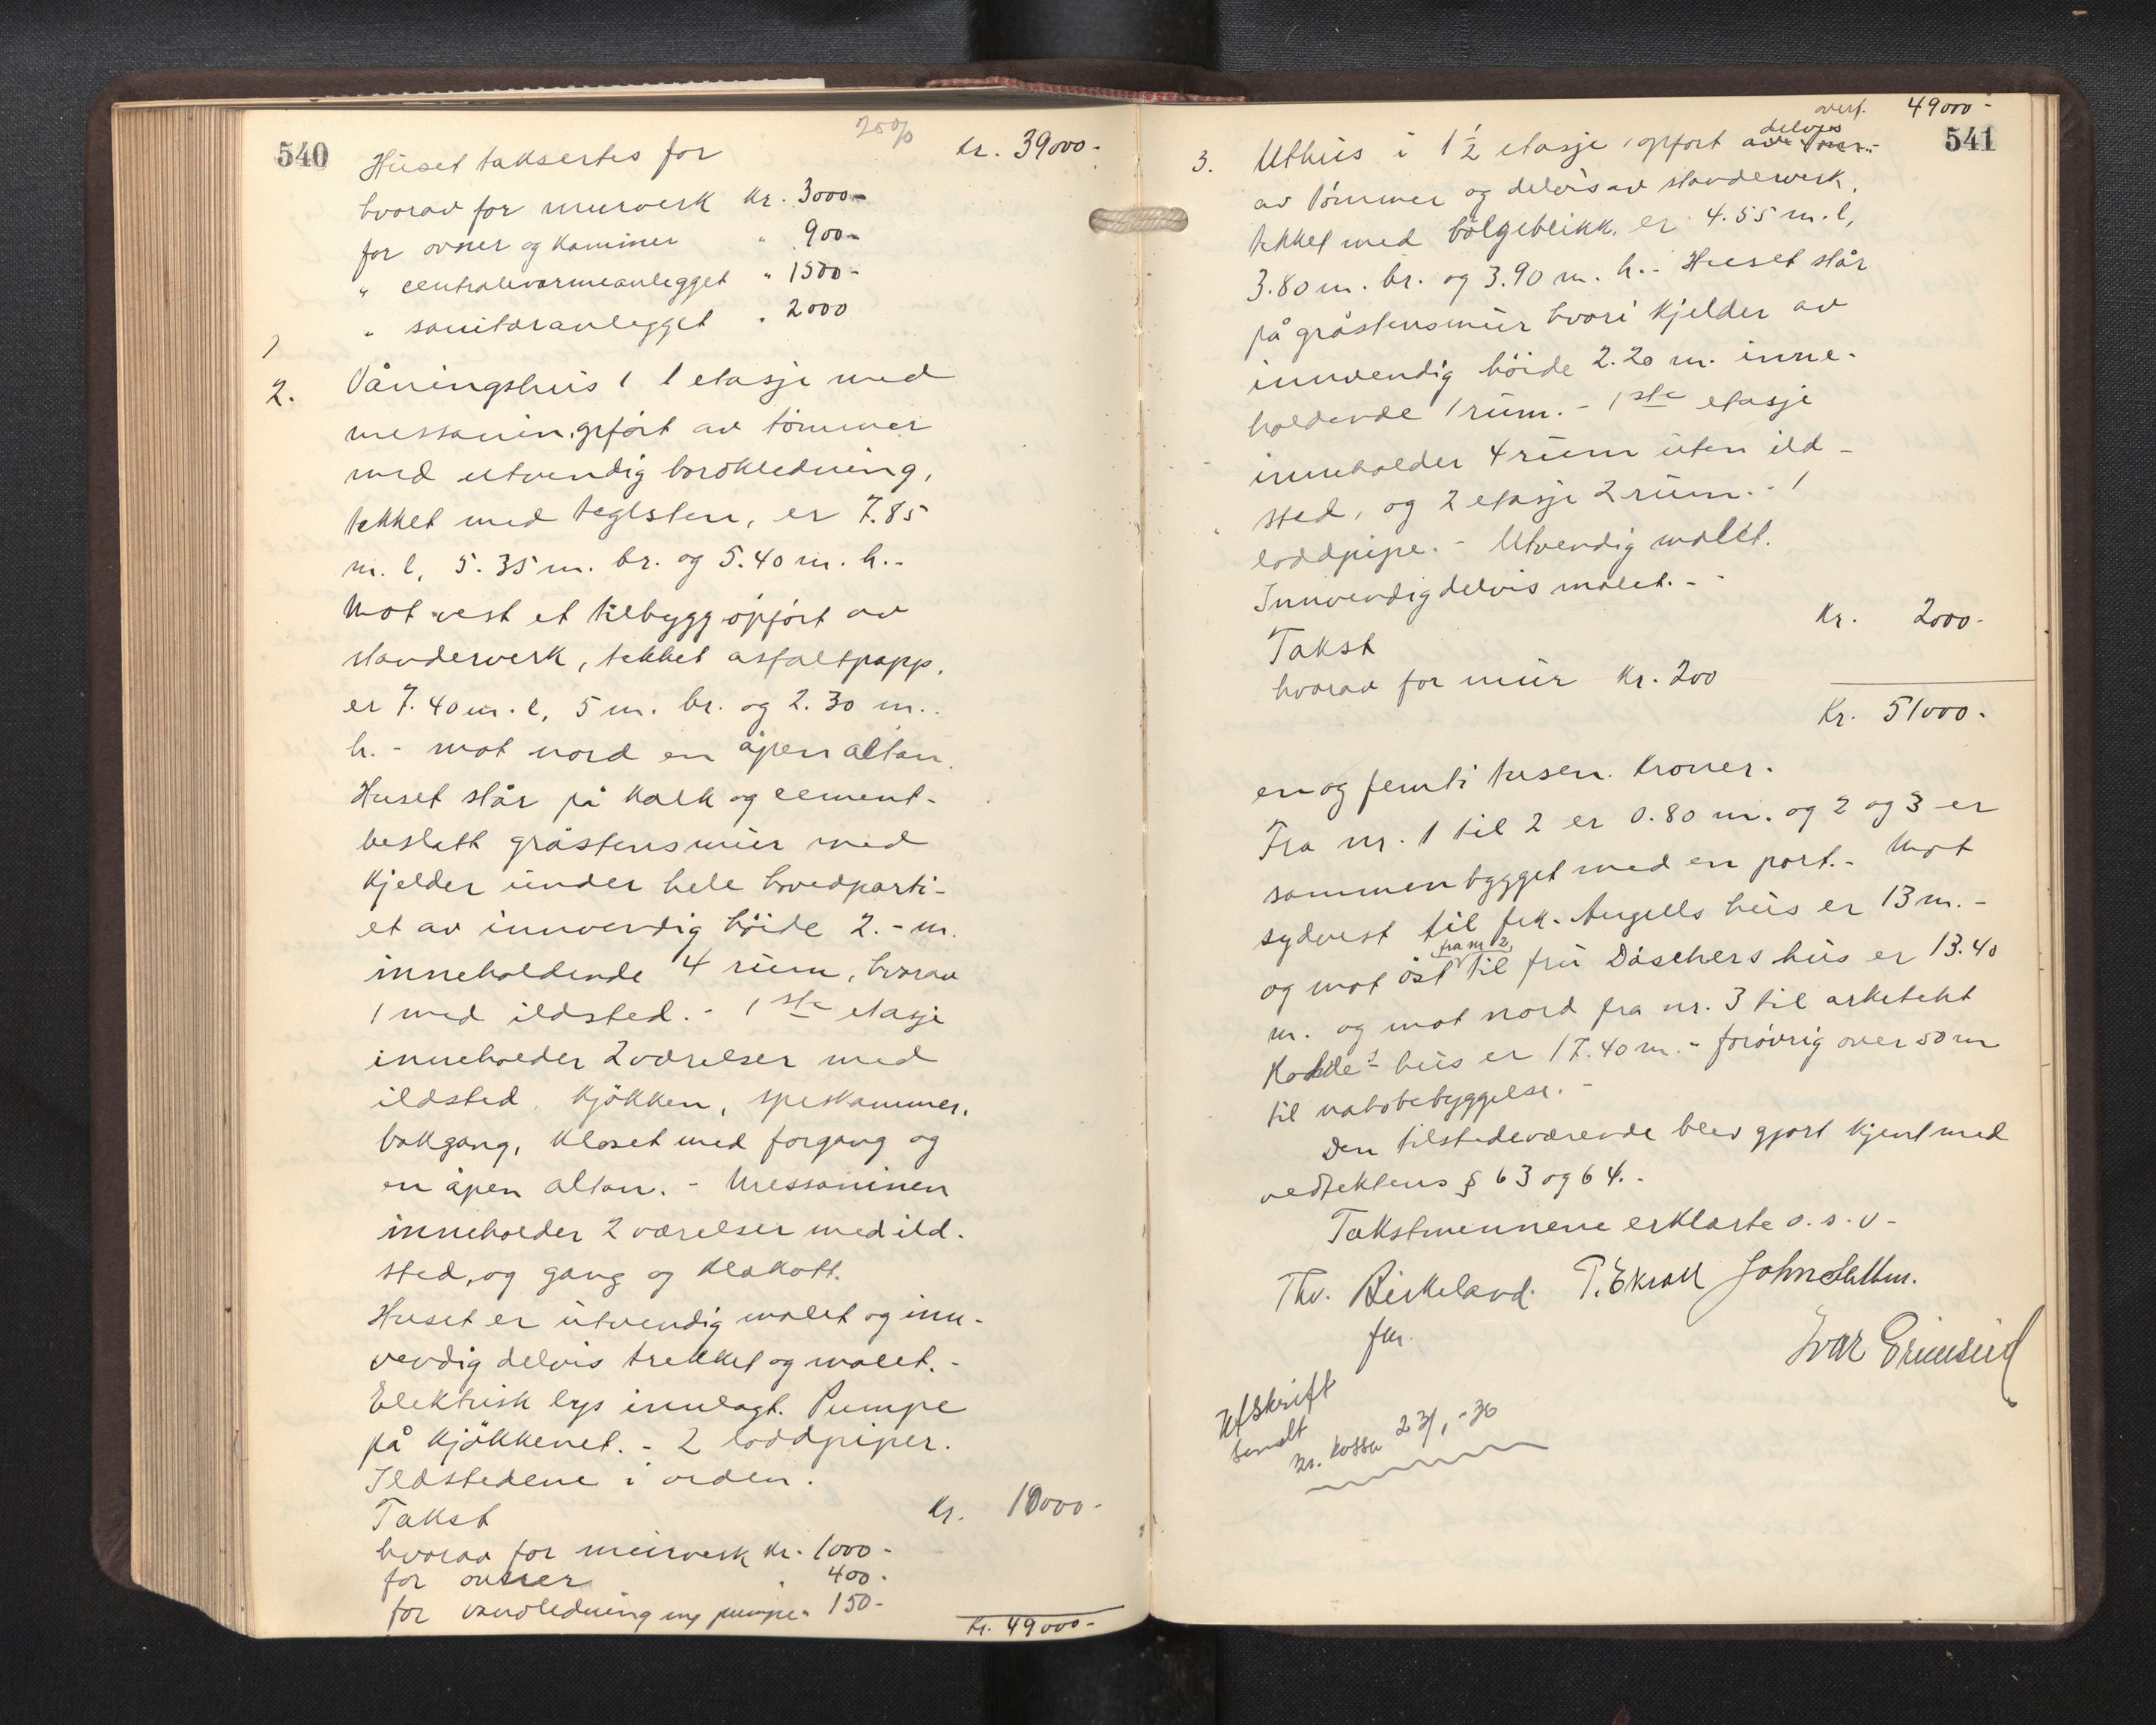 540
20%
Huset taksertes for Kr. 39000.-
hvorav for murverk Kr. 3000.-
for ovner og kaminer " 900.-
" centralvarmeanlegget " 1500.-
" sanitæranlegget " 2000
2. Våningshus i 1 etasje med
messanin, opført av tømmer
med utvendig bordkledning,
tekket med teglsten, er 7.85
m. l, 5.35 m. br. og 5.40 m. h.-
Mot vest et tilbygg opført av
standerverk, tekket asfaltpapp,
er 7.40 m. l, 5 m. br. og 2.30 m.
h. - mot nord en åpen altan.
Huset står på kalk og cement-
beslått gråstensmur med
kjelder under hele hovedparti-
et av innvendig høide 2.- m.
inneholdende 4 rum, hvorav
1 med ildsted. - 1ste etasje
inneholder 2 værelser med
ildsted, kjøkken, spiskammer,
bakgang, kloset med forgang og
en åpen altan. - Messaninen
inneholder 2 værelser med ild-
sted, og gang og klækott.
Huset er utvendig malet og inn-
vendig delvis trekket og malet. -
Elektrisk lys innlagt. Pumpe
på kjøkkenet. - 2 loddpiper.
Ildstedene i orden.
Takst Kr. 10000.-
hvorav for murverk Kr. 1000.-
for ovner " 400.-
for vandledning og pumpe " 150.-
Kr. 49000.-
541
overf. 49000.-
3. Uthus i 1 1/2 etasje, opført delvis
av tømmer og delvis av standerverk,
tekket med bølgeblikk, er 4.55 m. l,
3.80 m. br. og 3.90 m. h.- Huset står
på gråstensmur hvori kjelder av
innvendig høide 2.20 m. inne-
holdende 1 rum. - 1ste etasje
inneholder 4 rum uten ild-
sted, og 2 etasje 2 rum. - 1
loddpipe. - Utvendig malet.
Innvendig delvis malet. -
Takst Kr. 2000.-
hvorav for mur Kr. 200
Kr. 51000.-
en og femti tusen kroner.
Fra nr. 1 til 2 er 0.80 m. og 2 og 3 er
sammenbygget med en port. - Mot
sydvest til frk. Angells hus er 13 m. -
og mot øst fra nr 2 til fru Däschers hus er 13.40
m. og mot nord fra nr. 3 til arkitekt
hus er 17.40 m. - forøvrig over 50 m
til nabobebyggelse. -
Den tilstedeværende blev gjort kjent med
vedtektens § 63 og 64. -
Takstmennene erklærte o. s. v -
Thv. Birkeland. T. Ekrall John
fm.
Ivar Grimsund
Utskrift
sendt
Br. kassa 23/1 -36